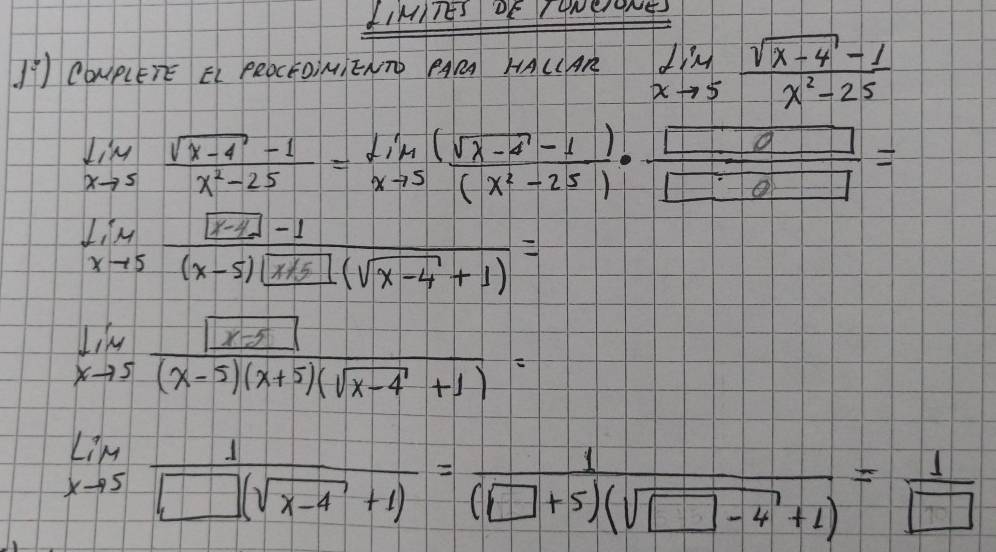 LÍMITES DE FUNCIONES
1°) COMPLETE EL PROCEDIMIENTO PARA HALLAR Lím x→5 (√(x-4) - 1)/(x² - 25)
Lím x→5 (√(x-4) - 1)/(x² - 25) = Lím x→5 (√(x-4) - 1)/(x² - 25) · [0]/[0] =
Lím x→5 ([x-4] - 1)/((x-5)[x+5](√(x-4) + 1)) =
Lím x→5 [x-5]/((x-5)(x+5)(√(x-4) + 1)) =
Lím x→5 1/([ ](√(x-4) + 1)) = 1/(([ ] + 5)(√([ ] - 4) + 1)) = 1/[ ]